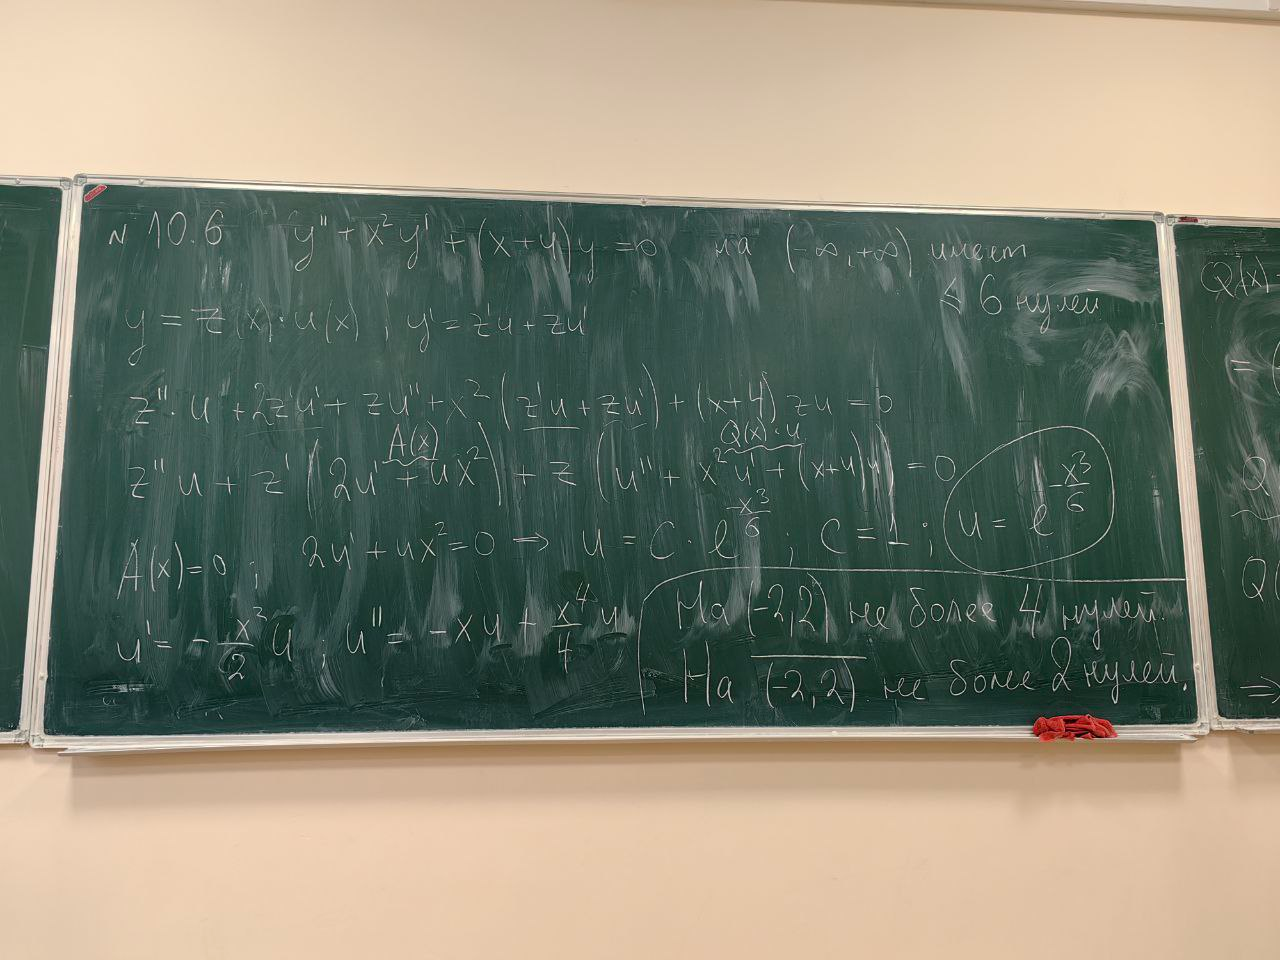 № 10.6 y'' + x² y' + (x+4)y = 0 на (-∞, +∞) имеет
≤ 6 нулей
y = z(x)·u(x) ; y' = z'u + zu'
z''·u + 2z'u' + zu'' + x² (z'u + zu') + (x+4) zu = 0
A(x) Q(x)·u
z'' u + z' (2u' + ux²) + z (u'' + x² u' + (x+4)u) = 0
A(x) = 0 ; 2u' + ux² = 0 ⇒ u = C · e^{-x³/6} ; C = 1 ; u = e^{-x³/6}
u' = - x²/2 u ; u'' = -xu + x⁴/4 u
На (-2,2) не более 4 нулей.
На \overline{(-2,2)} не более 2 нулей.
Q(x)
=
Q
Q(
⇒